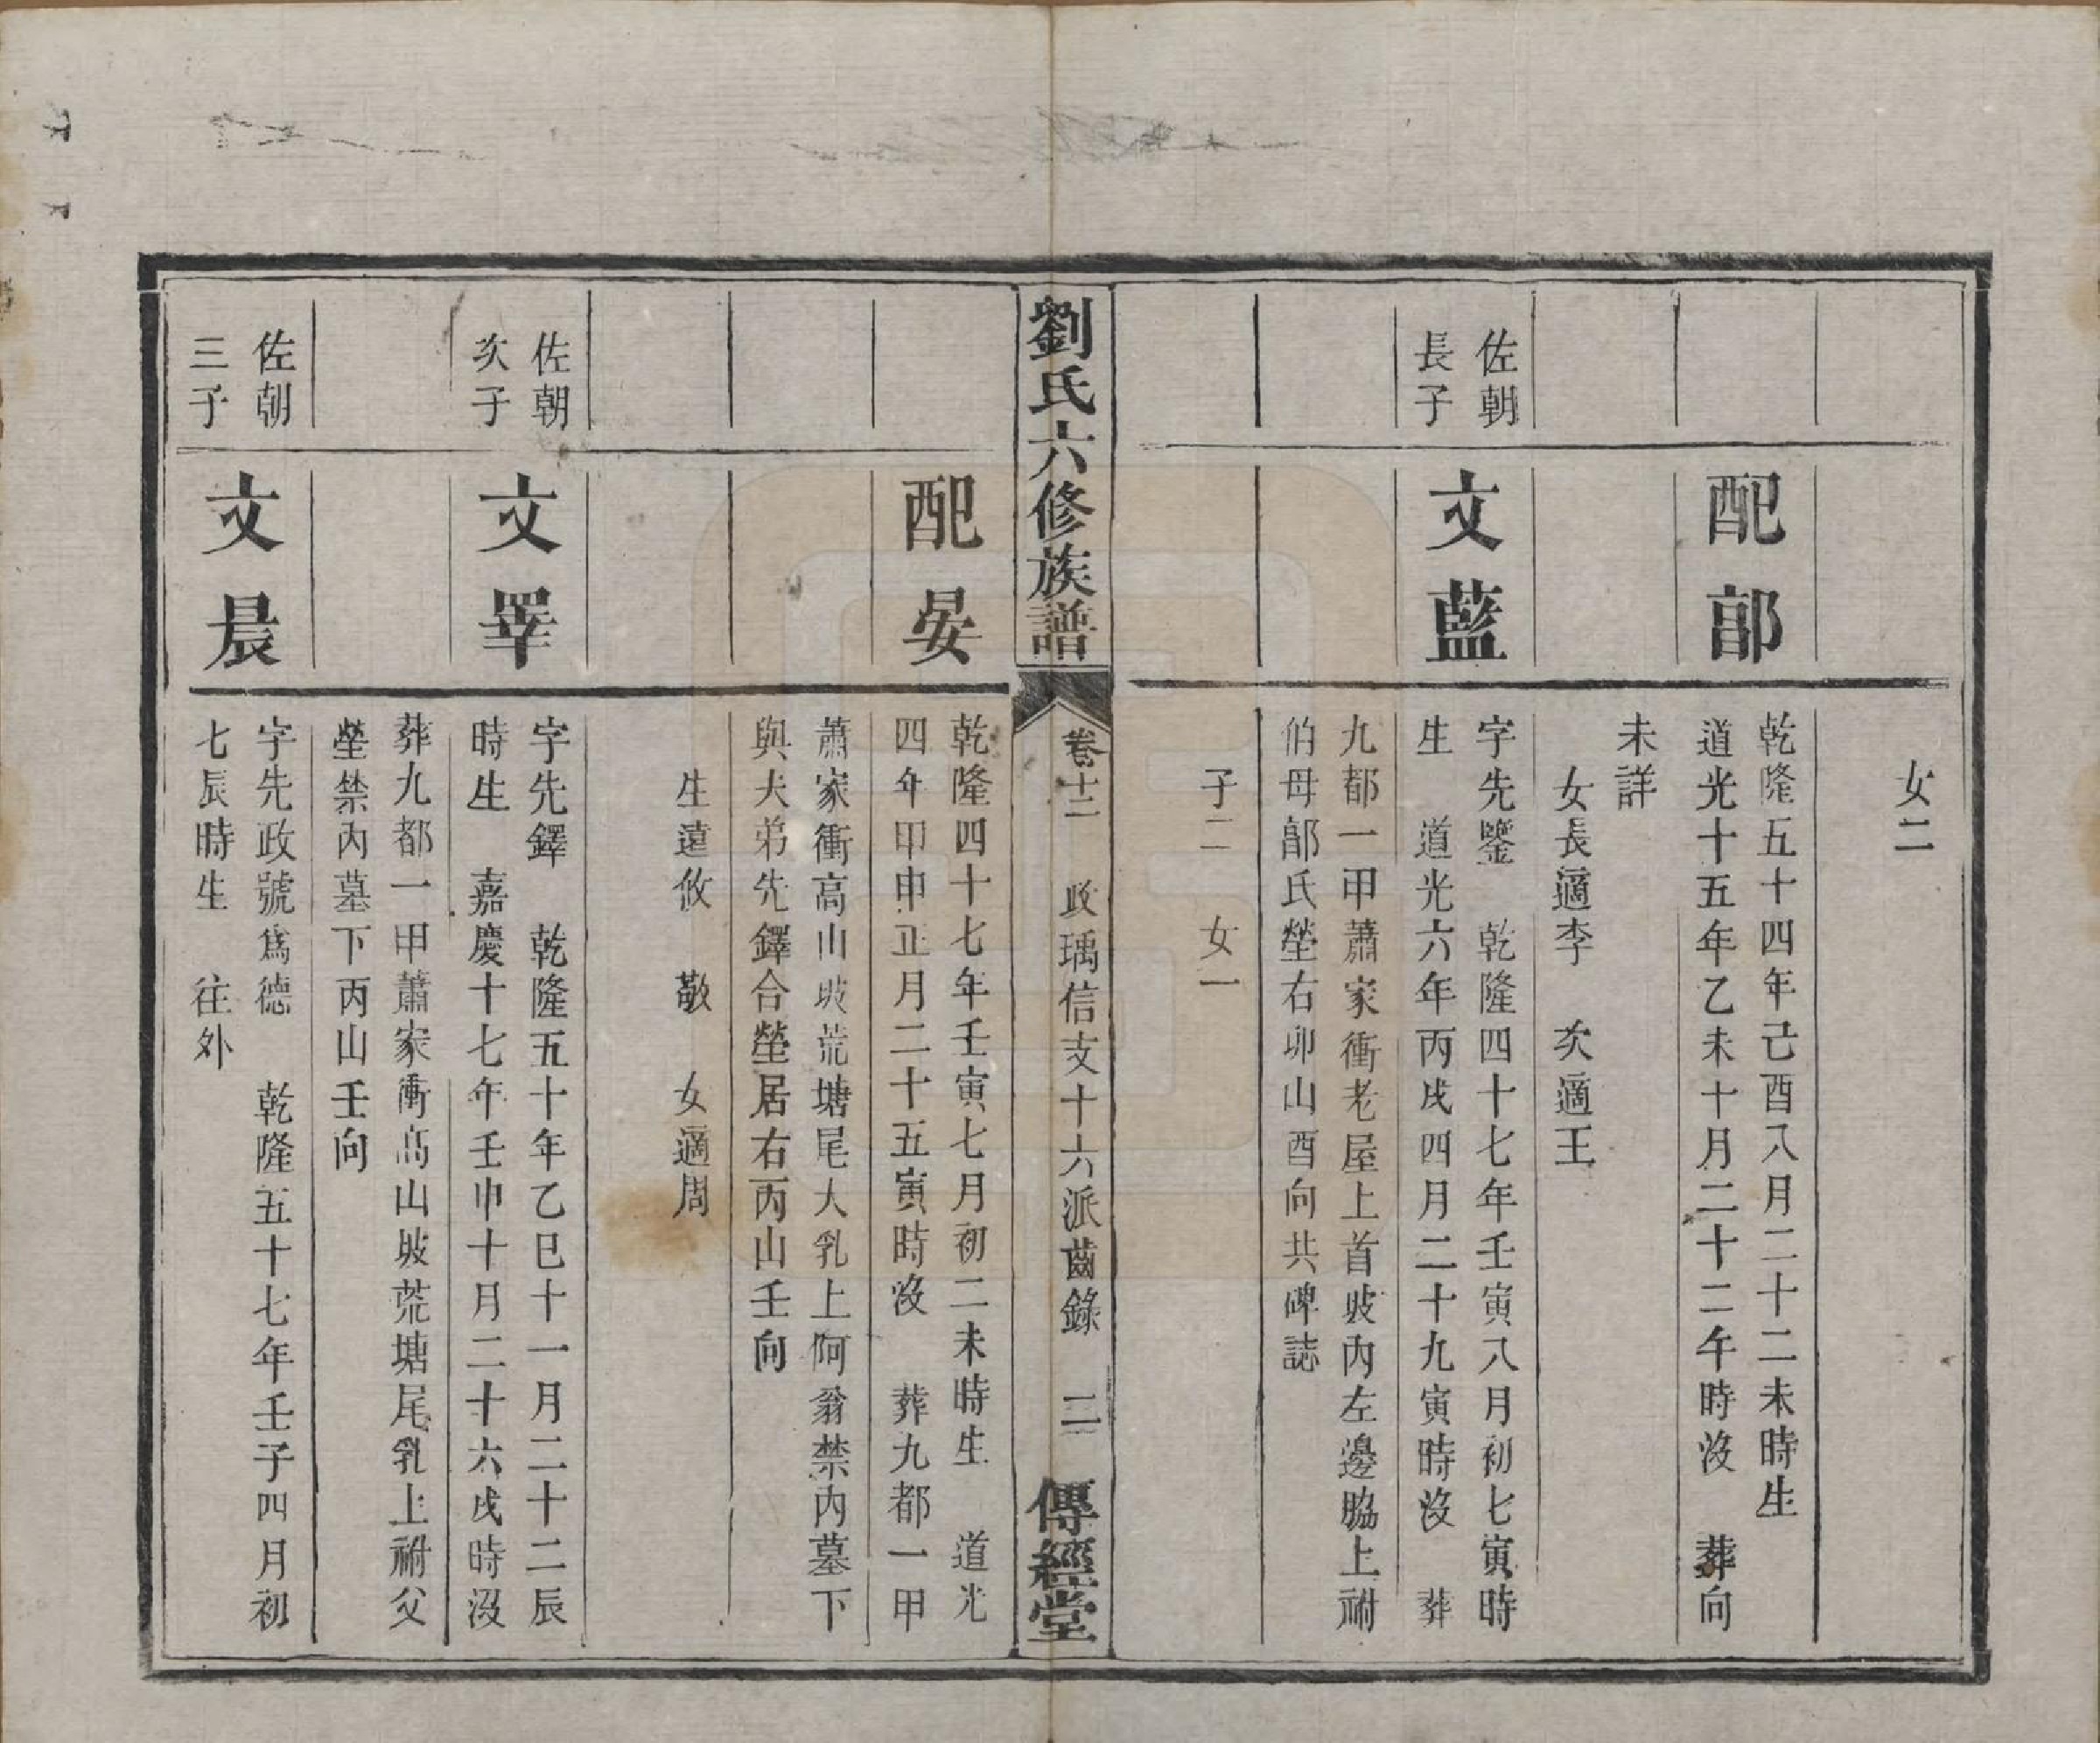 女二
配郎
乾隆五十四年己酉八月二十二未時生
道光十五年乙未十月二十二午時沒　葬向
未詳
女長適李　次適王
佐朝
長子
文藍
字先鑒　乾隆四十七年壬寅八月初七寅時
生　道光六年丙戌四月二十九寅時沒　葬
九都一甲蕭家衝老屋上首坡內左邊脇上祔
伯母郎氏塋右卯山酉向共碑誌
子二　女一
劉氏六修族譜
卷十二　政瑀信支十六派齒錄　二
傳經堂
配晏
乾隆四十七年壬寅七月初二未時生　道光
四年甲申正月二十五寅時沒　葬九都一甲
蕭家衝高山坡荒塘尾大乳上阿翁禁內墓下
與夫弟先鐸合塋居右丙山壬向
生遠攸　敬　女適周
佐朝
次子
文睪
字先鐸　乾隆五十年乙巳十一月二十二辰
時生　嘉慶十七年壬申十月二十六戌時沒
葬九都一甲蕭家衝高山坡荒塘尾乳上祔父
塋禁內墓下丙山壬向
佐朝
三子
文晨
字先政號爲德　乾隆五十七年壬子四月初
七辰時生　往外